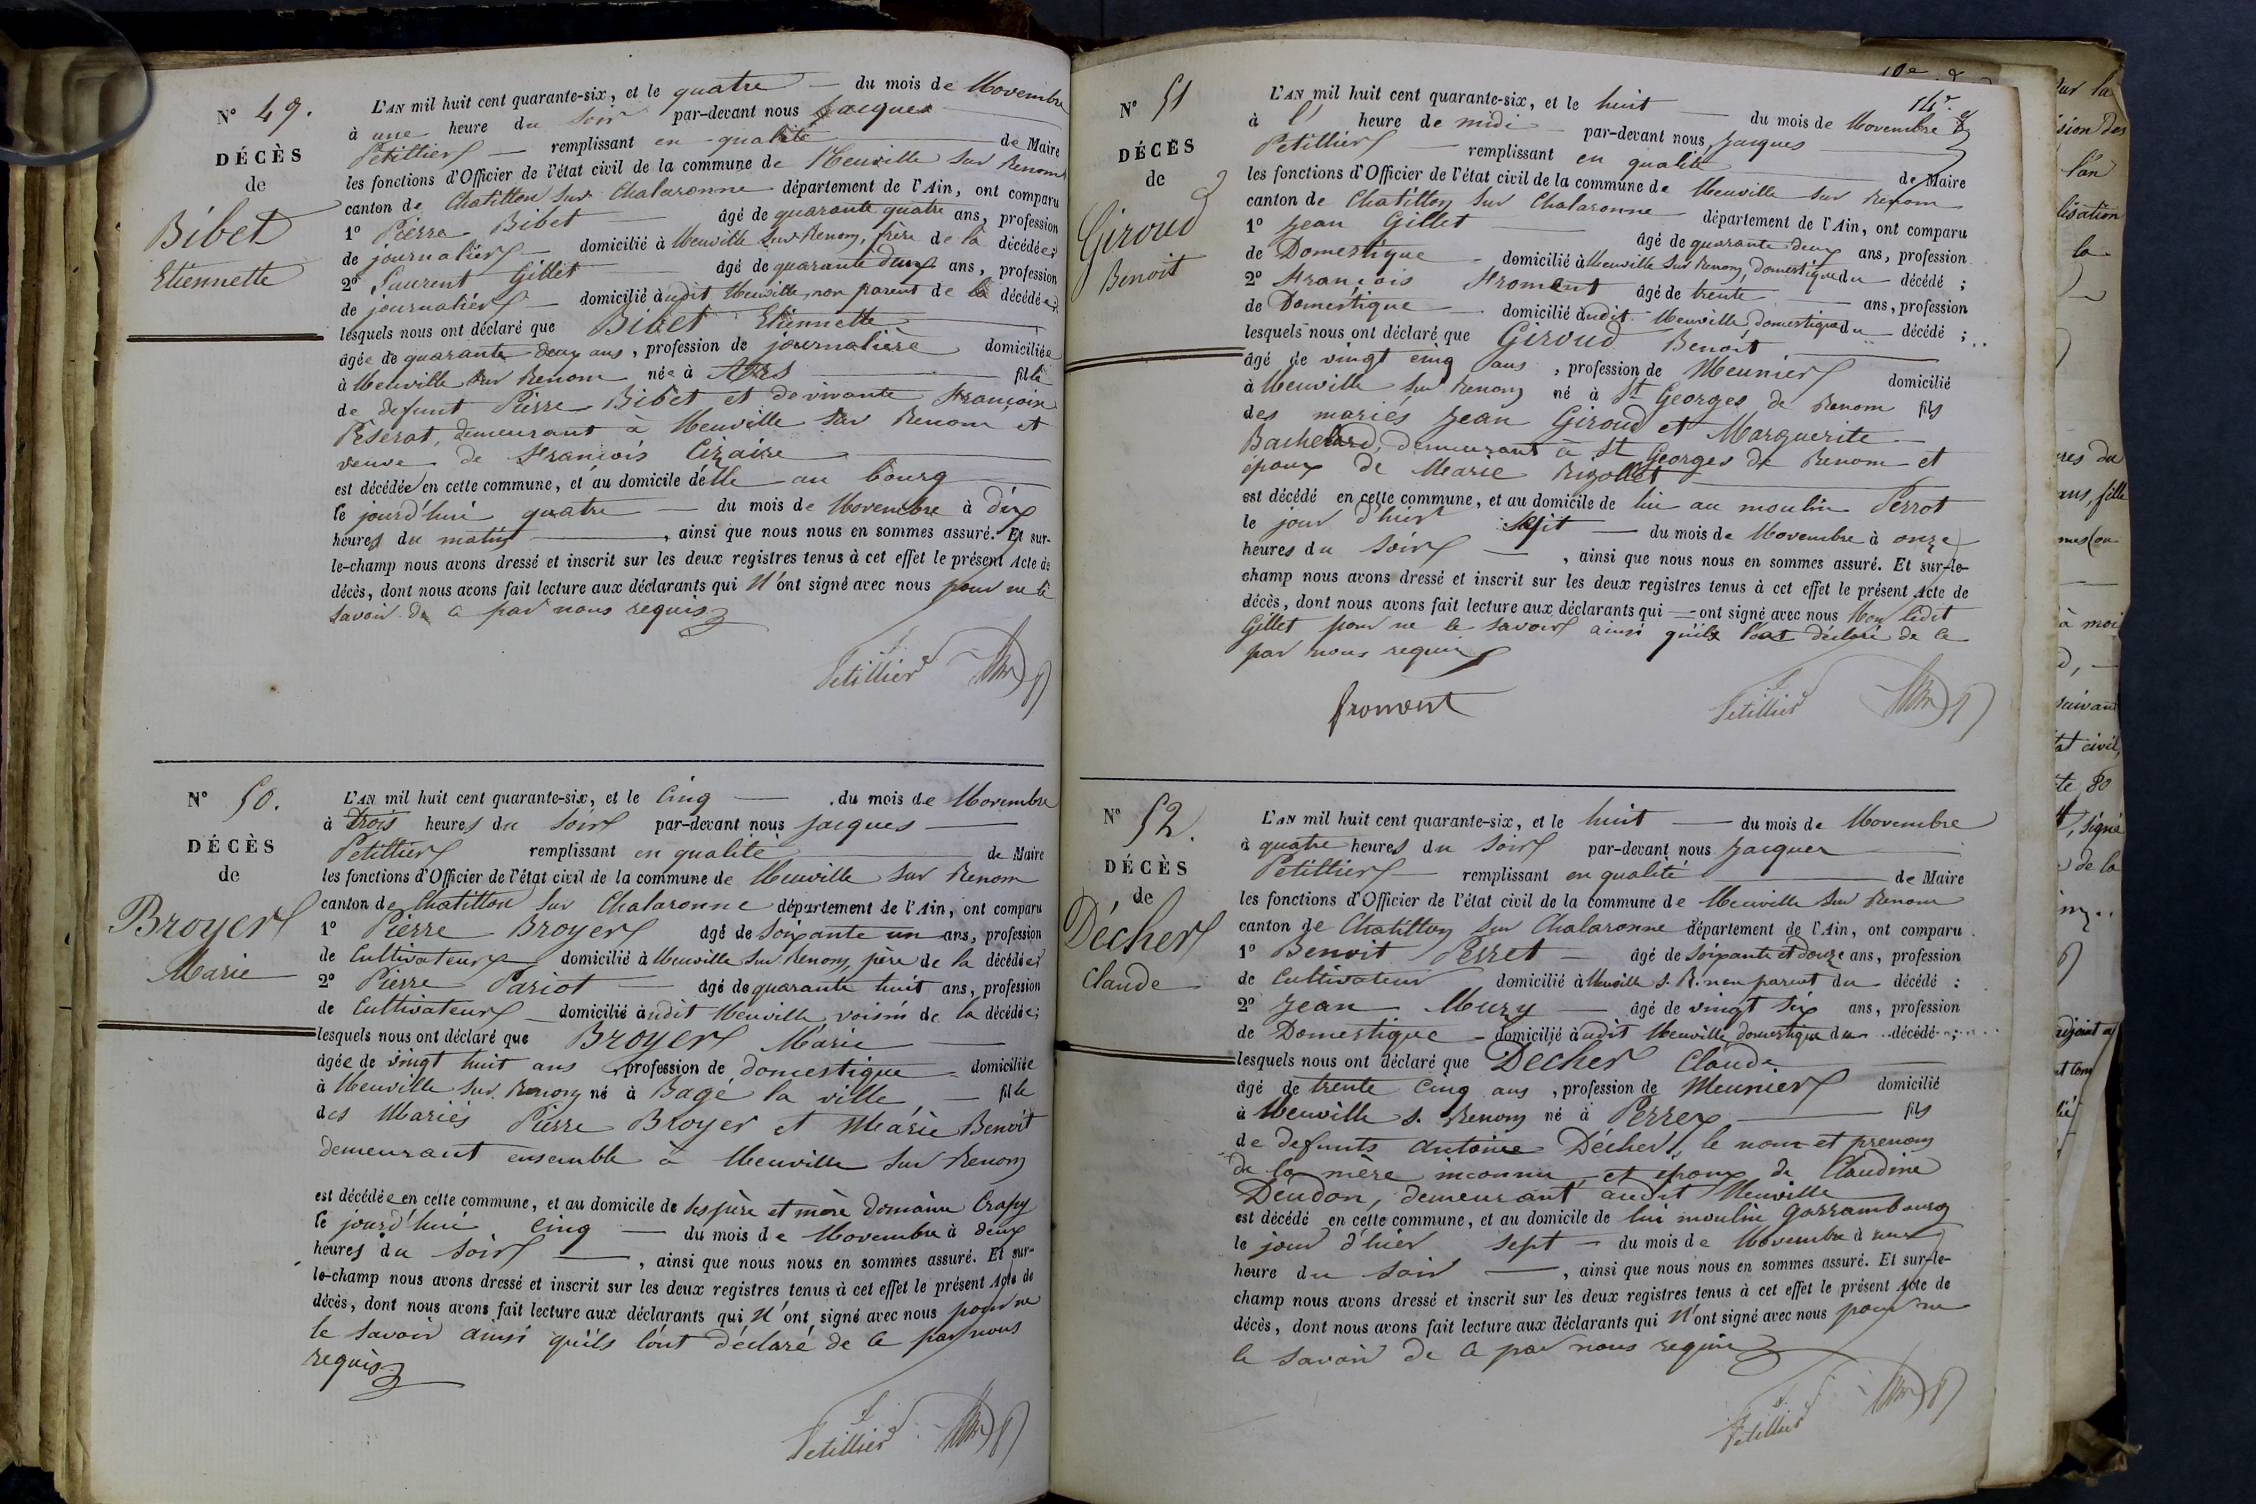 N° 49.
DÉCÈS
de
Bibet
Etiennette
L'AN mil huit cent quarante-six, et le quatre — du mois de Novembre
à une heure du soir par-devant nous Jacques
Petillier — remplissant en qualité — de Maire
les fonctions d'Officier de l'état civil de la commune de Neuville sur Renom
canton de Chatillon sur Chalaronne département de l'Ain, ont comparu
1° Pierre Bibet — âgé de quarante quatre ans, profession
de journalier — domicilié à Neuville sur Renom, frère de la décédée;
2° Laurent Gillet — âgé de quarante deux ans, profession
de journalier — domicilié audit Neuville, non parent de la décédée;
lesquels nous ont déclaré que Bibet Etiennette
âgée de quarante deux ans, profession de journalière domiciliée
à Neuville sur Renom née à Ars — fille
de defunt Pierre Bibet et de vivante Françoise
Peserat, demeurant à Neuville sur Renom et
veuve de François Cizaire
est décédée en cette commune, et au domicile d'elle au bourg
le jourd'hui quatre — du mois de Novembre à dix
heures du matin —, ainsi que nous nous en sommes assuré. Et sur-
le-champ nous avons dressé et inscrit sur les deux registres tenus à cet effet le présent Acte de
décès, dont nous avons fait lecture aux déclarants qui n'ont signé avec nous pour ne le
savoir de ce par nous requis
Petillier
N° 50.
DÉCÈS
de
Broyer
Marie
L'AN mil huit cent quarante-six, et le cinq — du mois de Novembre
à trois heures du soir par-devant nous Jacques —
Petillier remplissant en qualité — de Maire
les fonctions d'Officier de l'état civil de la commune de Neuville sur Renom
canton de Chatillon sur Chalaronne département de l'Ain, ont comparu
1° Pierre Broyer âgé de soixante un ans, profession
de Cultivateur domicilié à Neuville sur Renom, père de la décédée;
2° Pierre Pariot — âgé de quarante huit ans, profession
de Cultivateur — domicilié audit Neuville voisin de la décédée;
lesquels nous ont déclaré que Broyer Marie —
âgée de vingt huit ans profession de domestique domiciliée
à Neuville sur Renom né à Bagé la ville, — fille
des Mariés Pierre Broyer et Marie Benoît
demeurant ensemble à Neuville sur Renom
est décédée en cette commune, et au domicile de ses père et mère domaine Crapy
le jourd'hui cinq — du mois de Novembre à deux
heures du soir —, ainsi que nous nous en sommes assuré. Et sur-
le-champ nous avons dressé et inscrit sur les deux registres tenus à cet effet le présent Acte de
décès, dont nous avons fait lecture aux déclarants qui n'ont signé avec nous pour ne
le savoir ainsi qu'ils l'ont déclaré de ce par nous
requis
Petillier
N° 51
DÉCÈS
de
Giroud
Benoit
L'AN mil huit cent quarante-six, et le huit — du mois de Novembre
à l' heure de midi — par-devant nous Jacques
Petillier — remplissant en qualité — de Maire
les fonctions d'Officier de l'état civil de la commune de Neuville sur Renom
canton de Chatillon sur Chalaronne département de l'Ain, ont comparu
1° Jean Gillet — âgé de quarante deux ans, profession
de Domestique — domicilié à Neuville sur Renom, domestique du décédé ;
2° François Froment âgé de trente — ans, profession
de Domestique — domicilié audit Neuville, domestique du décédé ;
lesquels nous ont déclaré que Giroud Benoit
âgé de vingt cinq ans, profession de Meunier domicilié
à Neuville sur Renom né à St Georges de Renom fils
des mariés Jean Giroud et Marguerite
Bachelard, demeurant à St Georges de Renom et
époux de Marie Rizollet
est décédé en cette commune, et au domicile de lui au moulin Perrot
le jour d'hier sept — du mois de Novembre à onze
heures du soir —, ainsi que nous nous en sommes assuré. Et sur-le-
champ nous avons dressé et inscrit sur les deux registres tenus à cet effet le présent Acte de
décès, dont nous avons fait lecture aux déclarants qui — ont signé avec nous Non ledit
Gillet pour ne le savoir ainsi qu'il l'a déclaré de ce
par nous requis
fromont
Petillier
N° 52.
DÉCÈS
de
Décher
Claude
L'AN mil huit cent quarante-six, et le huit — du mois de Novembre
à quatre heures du soir par-devant nous Jacques
Petillier — remplissant en qualité — de Maire
les fonctions d'Officier de l'état civil de la commune de Neuville sur Renom
canton de Chatillon sur Chalaronne département de l'Ain, ont comparu
1° Benoit Perret — âgé de soixante et douze ans, profession
de Cultivateur domicilié à Neuville s. R. non parent du décédé ;
2° Jean Mury — âgé de vingt six ans, profession
de Domestique — domicilié audit Neuville, domestique du décédé ;
lesquels nous ont déclaré que Décher Claude
âgé de trente cinq ans, profession de Meunier domicilié
à Neuville s. Renom né à Perrex — fils
de defunts Antoine Décher, le nom et prenom
de la mère inconnu, et époux de Claudine
Deudon, demeurant audit Neuville
est décédé en cette commune, et au domicile de lui moulin Garrambourg
le jour d'hier sept — du mois de Novembre à une
heure du soir —, ainsi que nous nous en sommes assuré. Et sur-le-
champ nous avons dressé et inscrit sur les deux registres tenus à cet effet le présent Acte de
décès, dont nous avons fait lecture aux déclarants qui n'ont signé avec nous pour ne
le savoir de ce par nous requis
Petillier